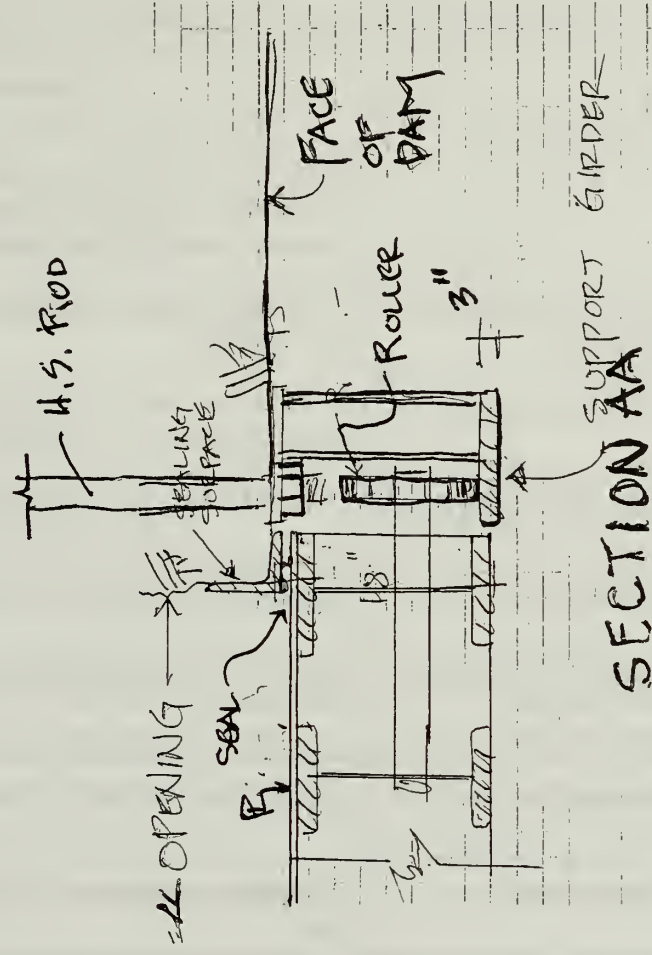 H.S. ROD
SEALING
SURFACE
FACE
OF
DAM
OPENING
SEAL
ROLLER
3"
18"
SUPPORT GIRDER
SECTION AA